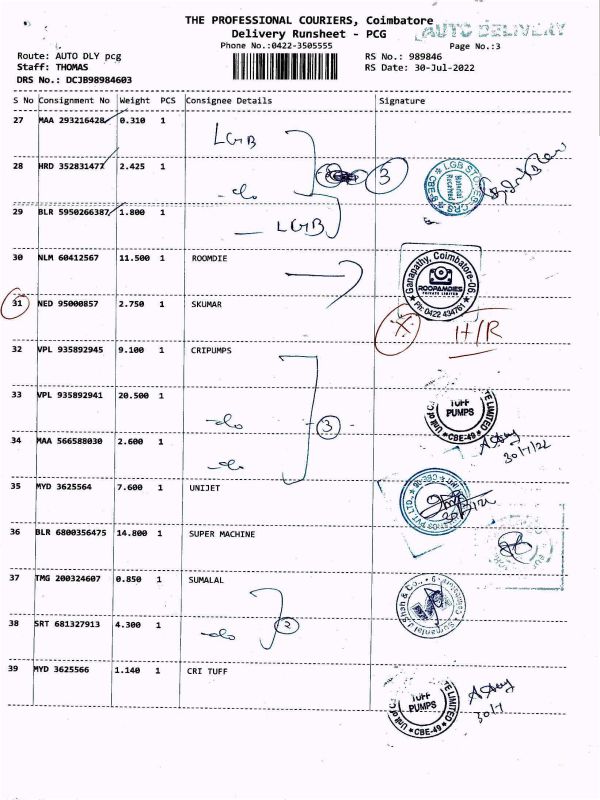 THE PROFESSIONAL COURIERS, Coimbatore
AUTO DELIVERY
Delivery Runsheet - PCG
Phone No.:0422-3505555
Page No.:3
Route: AUTO DLY pcg
RS No.: 989846
Staff: THOMAS
RS Date: 30-Jul-2022
DRS No.: DCJB98984603
S No Consignment No Weight PCS Consignee Details Signature
27 MAA 293216428 0.310 1
LGB
28 HRD 352831477 2.425 1
3
LGB STORES
Material Received
-do
29 BLR 5950266387 1.800 1
LGB
30 NLM 60412567 11.500 1 ROOMDIE
Ganapathy, Coimbatore-06
ROOPAMDIES
PRIVATE LIMITED
Ph: 0422 434761
31 NED 95000857 2.750 1 SKUMAR
X H/R
32 VPL 935892945 9.100 1 CRIPUMPS
33 VPL 935892941 20.500 1
-do
3
TUFF PUMPS
Unit of C
TE LIMITED
CBE-49
34 MAA 566588030 2.600 1
30/7/22
-do
35 MYD 3625564 7.600 1 UNIJET
PVT LTD.,
36 BLR 6800356475 14.800 1 SUPER MACHINE
37 TMG 200324607 0.850 1 SUMALAL
Sumanlal J Shah & Co.,
38 SRT 681327913 4.300 1
-do
2
39 MYD 3625566 1.140 1 CRI TUFF
TUFF PUMPS
Unit of C
TE LIMITED
CBE-49
30/7